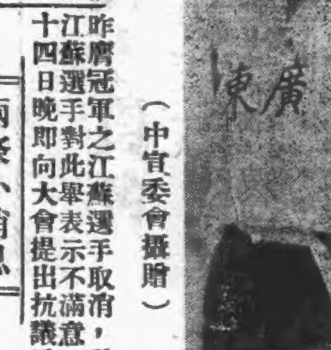 廣東
（中宣委會攝贈）
昨膺冠軍之江蘇選手取消，
江蘇選手對此舉表示不滿意
十四日晚即向大會提出抗議